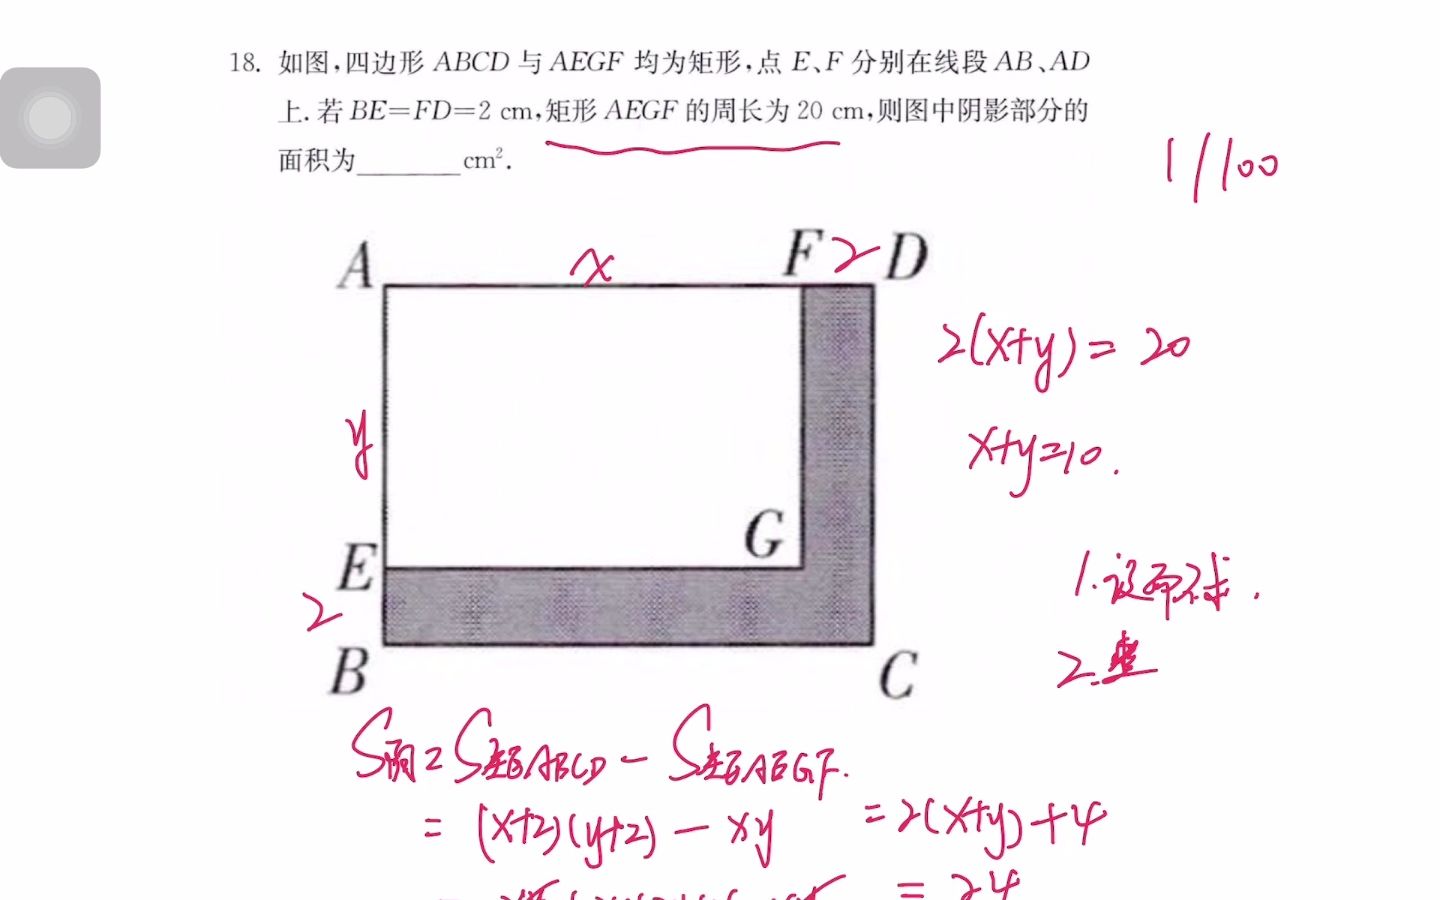 18. 如图,四边形 ABCD 与 AEGF 均为矩形,点 E、F 分别在线段 AB、AD
上. 若 BE=FD=2 cm,矩形 AEGF 的周长为 20 cm,则图中阴影部分的
面积为________cm².
1/100
A x F 2 D
2(x+y)=20
y
x+y=10.
E G
1.设而不求.
2
2.整
B C
S阴=S矩形ABCD-S矩形AEGF.
=(x+2)(y+2)-xy =2(x+y)+4
=24